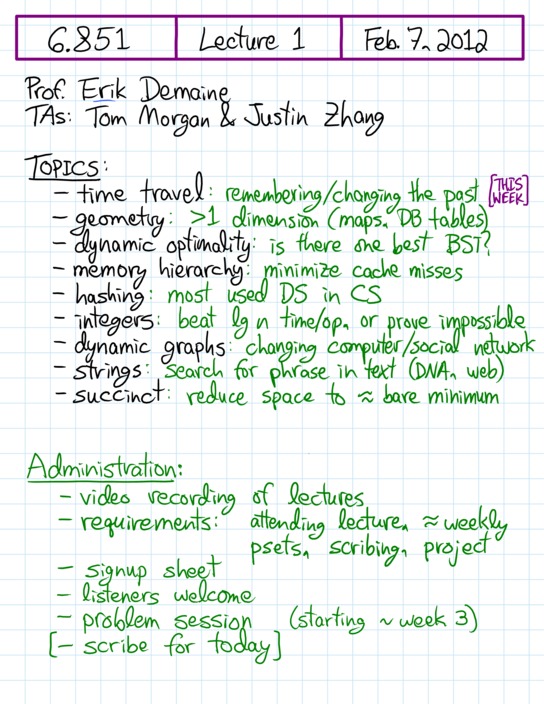 6.851 Lecture 1 Feb. 7, 2012
Prof. Erik Demaine
TAs: Tom Morgan & Justin Zhang
TOPICS:
– time travel: remembering/changing the past [THIS WEEK]
– geometry: >1 dimension (maps, DB tables)
– dynamic optimality: is there one best BST?
– memory hierarchy: minimize cache misses
– hashing: most used DS in CS
– integers: beat lg n time/op. or prove impossible
– dynamic graphs: changing computer/social network
– strings: search for phrase in text (DNA, web)
– succinct: reduce space to ≈ bare minimum
Administration:
– video recording of lectures
– requirements: attending lecture, ≈ weekly
psets, scribing, project
– signup sheet
– listeners welcome
– problem session (starting ~ week 3)
[– scribe for today]